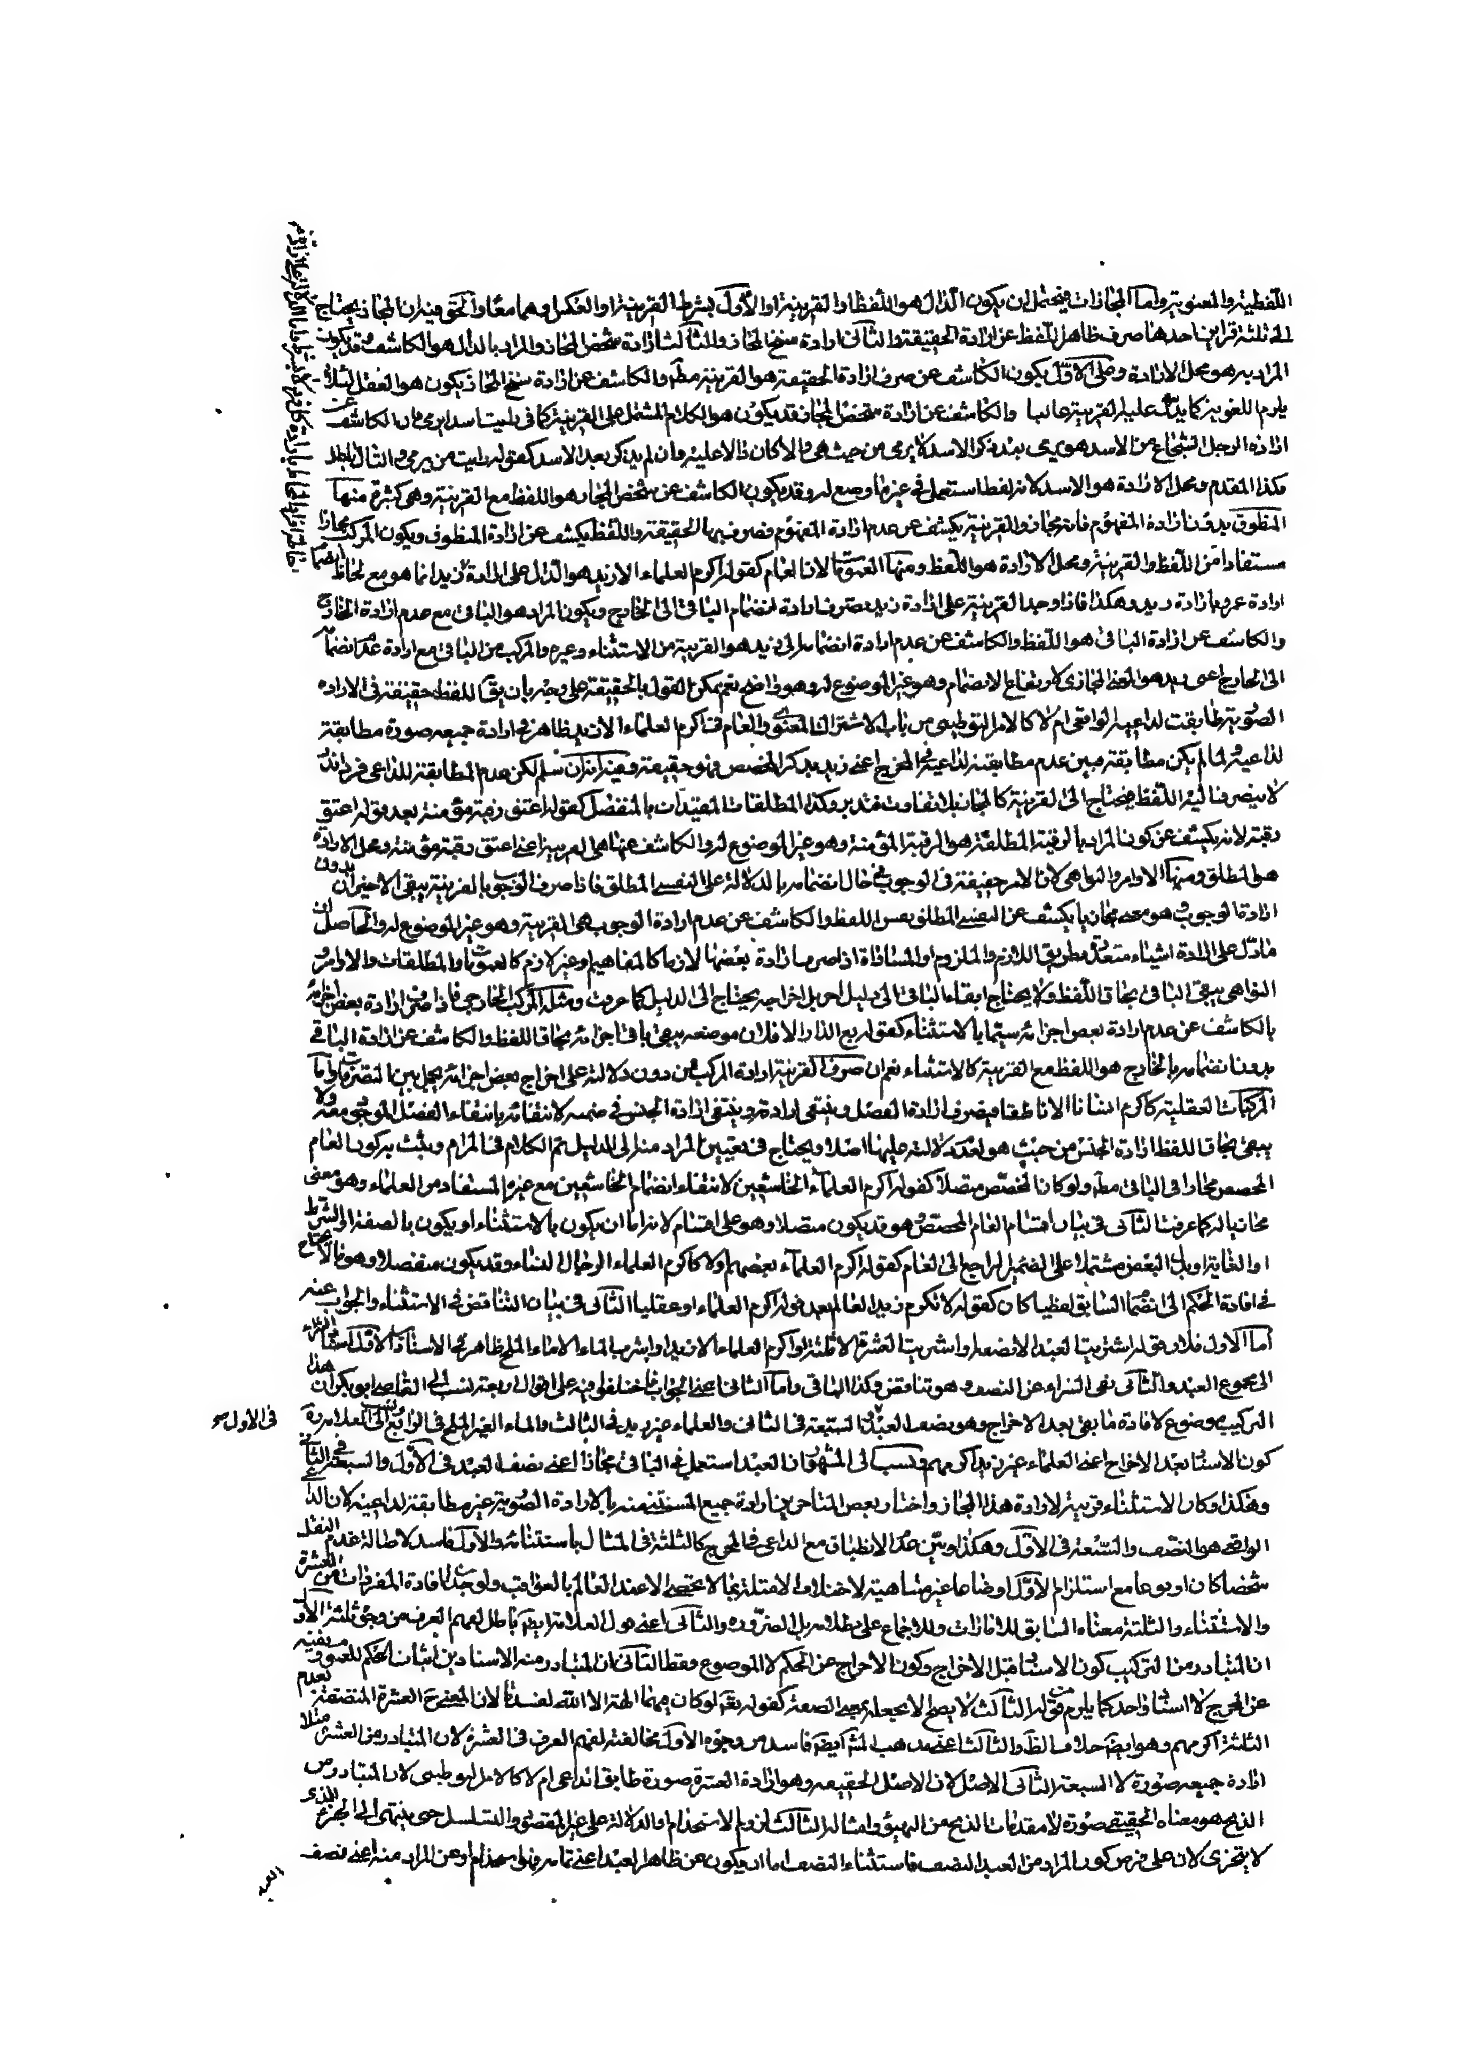 اللفظية والمعنوية واما المجازات فيحتمل ان يكون الدال هو اللفظ او القرينة او الاول بشرط القرينة او العكس او هما معا والحق فيه ان المجاز يحتاج
الى ثلثة قراين احدها صرف ظاهر اللفظ عن ارادة الحقيقة والثانى ارادة سنخ المجاز والثالث ارادة شخص المجاز والمراد بالدال هو الكاشف وقد يكون
المراد به هو محل الارادة وعلى الاول يكون الكاشف عن صرف ارادة الحقيقة هو القرينة مطم والكاشف عن ارادة سنخ المجاز يكون هو العقل لئلا
يلزم اللغوية كما يدل عليه القرينة غالبا والكاشف عن ارادة شخص المجاز قد يكون هو الكلام المشتمل على القرينة كما فى رايت اسدا يرمى فان الكاشف عن
ارادة الرجل الشجاع من الاسد هو يرمى بعد ذكر الاسد لا يرمى من حيث هى والا كان دالا عليه وان لم يذكر بعد الاسد كقوله رايت من يرمى والتالى باطل
فكذا المقدم ومحل الارادة هو الاسد لانه لفظ استعمل فى غير ما وضع له وقد يكون الكاشف عن شخص المجاز هو اللفظ مع القرينة وهى كثيرة منها
المنطوق بدون ارادة المفهوم فانه مجاز والقرينة يكشف عن عدم ارادة المفهوم فصرف بها الحقيقة واللفظ يكشف عن ارادة المنطوق ويكون المركب مجازا
مستفادا من اللفظ والقرينة ومحل الارادة هو اللفظ ومنها العمومات لان العام كقوله اكرم العلماء الا زيد هو الدال على ارادة زيد انما هو مع لحاظ انضمام
ارادة عمرو بارادة زيد وهكذا فاذا وجد القرينة على ارادة زيد يصرف ارادة انضمام الباقى الى الخارج ويكون المراد هو الباقى مع عدم ارادة الخارج
والكاشف عن ارادة الباقى هو اللفظ والكاشف عن عدم ارادة انضمامه الى زيد هو القرينة من الاستثناء وغيره والمركب من الباقى مع ارادة عدم انضمامه
الى الخارج اعنى زيد هو المعنى المجازى لارتفاع الانضمام وهو غير الموضوع له وهو واضح نعم يمكن القول بالحقيقة على وجه بان يقال اللفظ حقيقة فى الارادة
الصورية طابقت لداعيه الواقعى ام لا كالامر التوطينى من باب الاشتراك المعنوى والعام فى اكرم العلماء الا زيد ظاهر فى ارادة جميعه صورة مطابقة
لداعيه ولما لم يكن مطابقة مبين عدم مطابقته لداعيه فى المخرج اعنى زيد بذكر المخصص فهو حقيقة وفيه انه ان سلم لكن عدم المطابقة للداعى فرد نادر
لا ينصرف اليه اللفظ فيحتاج الى القرينة كالمجاز بلا تفاوت فتدبر وكذا المطلقات المقيدات بالمنفصل كقوله اعتق رقبة مؤمنة بعد قوله اعتق
رقبة لانه يكشف عن كون المراد بالرقبة المطلقة هو الرقبة المؤمنة وهو غير الموضوع له والكاشف عنها هى القرينة اعنى اعتق رقبة مؤمنة ومحل الارادة
هو المطلق ومنها الاوامر والنواهى لان الامر حقيقة فى الوجوب فى حال انضمامه بالدلالة على النفسى المطلق فاذا صرف الوجوب بالقرينة يبقى الاخيران بدون
ارادة الوجوب وهو معنى مجازيا يكشف عن النفسى المطلق نفس اللفظ والكاشف عن عدم ارادة الوجوب هى القرينة وهو غير الموضوع له والحاصل ان
ما دل على ارادة اشياء متعددة بطريق اللازم والملزوم او المساواة اذا صرف ارادة بعضها لازما كالمفاهيم او غير لازم كالعمومات والمطلقات والاوامر و
النواهى يبقى الباقى بحاق اللفظ ولا يحتاج ابقاء الباقى الى دليل اخر بل اخراجه يحتاج الى الدليل كما عرفت ومثله المركب الخارجى فاذا صرف ارادة بعض اجزائه
بالكاشف عن عدم ارادة بعض اجزائه سيما بالاستثناء كقوله بع الدار الا فلان موضعه يبقى باقى اجزائه بحاق اللفظ والكاشف عن ارادة الباقى
بدون انضمامه بالخارج هو اللفظ مع القرينة كالاستثناء نعم ان صرف القرينة ارادة المركب من دون دلالته على اخراج بعض اجزائه يجمل بين التصرفات واما
المركبات العقلية كاكرم انسانا الا ناطقا فيصرف ارادة الفصل وينتفى ارادة الجنس فى ضمنه لانتفائه بانتفاء الفصل الموجود معه ولا
يبقى بحاق اللفظ ارادة الجنس من حيث هو لعدم دلالته عليها اصلا ويحتاج فى تعيين المراد منه الى الدليل تم الكلام فى المرام ويثبت به كون العام
المخصص مجازا فى الباقى مطم ولو كان المخصص متصلا كقوله اكرم العلماء الخاشعين لانتفاء انضمام الخاشعين مع غيرهم المستفاد من العلماء وهو معنى
مجازيا له كما عرفت الثانى فى بيان اقسام العام المخصص وهو قد يكون متصلا وهو على اقسام لانه اما ان يكون بالاستثناء او يكون بالصفة او الشرط
او الغاية او بدل البعض مشتملا على الضمير الراجع الى العام كقوله اكرم العلماء بعضهم اولا كاكرم العلماء الرجال النساء وقد يكون منفصلا وهو ما لا يحتاج
فى افادة الحكم الى انضمام السابق لفظيا كان كقوله لا تكرم زيد العالم بعد قوله اكرم العلماء او عقليا الثانى فى بيان التناقض فى الاستثناء والجواب عنه
اما الاول فلان قوله اشتريت العبد الا نصفه او اشتريت العشرة الا ثلثة او اكرم العلماء الا زيدا او اشرب الماء الا ماء الملح ظاهر فى الاسناد الاول اسناد الشراء
الى مجموع العبد والثانى نفى الشراء عن النصف وهو تناقض وكذا الباقى واما الثانى اعنى الجواب فاختلفوا فيه على اقوال اربعة نسب الى القاضى ابو بكر ان هذا
التركيب موضوع لافادة ما بقى بعد الاخراج وهو نصف العبد والسبعة فى الثانى والعلماء غير زيد فى الثالث والماء الغير الملح فى الرابع ونسب الى العلامة
كون الاسناد بعد الاخراج اعنى العلماء غير زيد اكرمهم ونسب الى المشهور ان العبد استعمل فى الباقى مجازا اعنى نصف العبد فى الاول والسبعة فى الثانى
وهكذا وكان الاستثناء قرينة لارادة هذا المجاز واختار بعض المتاخرين ارادة جميع المستثنى منه بالارادة الصورية غير مطابقة لداعيه لان الداعى
الواقعى هو النصف والسبعة فى الاول وهكذا وبين عدم الانطباق مع الداعى فى المخرج كالثلثة فى المثال باستثنائه والاول فاسد لاصالة عدم النقل
شخصا كان او نوعا مع استلزام الاول اوضاعا غير متناهية لاختلاف الامثلة بما لا يحصى الا عند العالم بالعواقب ولوجدان افادة المفردات من العشرة
والاستثناء والثلثة معناه السابق للامارات وللاجماع على بطلانه بل الضرورة والثانى اعنى قول العلامة ايضا باطل لفهم العرف من وجوه ثلثة الاول
ان المتبادر من التركيب كون الاسناد قبل الاخراج وكون الاخراج عن الحكم لا الموضوع فقط الثانى ان المتبادر منه الاسنادين اثبات الحكم للعموم ونفيه
عن المخرج لا اسناد واحد كما يلزم من قوله الثالث لا يصلح الا بجعله بمعنى الصفة كقوله تعالى لو كان فيهما الهة الا الله لفسدتا لان المعنى ح العشرة المتصفة بعدم
الثلثة اكرمهم وهو ايضا خلاف الظاهر والثالث اعنى مذهب المشهور ايضا فاسد من وجوه الاول مخالفته لفهم العرف فى العشرة لان المتبادر من العشرة مثلا
ارادة جميعه صورة لا السبعة الثانى الاصل لان الاصل الحقيقة وهو ارادة العشرة صورة طابق الداعى ام لا كالامر التوطينى لان المتبادر من
الذبح هو معناه الحقيقى صورة لا مقدمات الذبح من التهيؤ وامثاله الثالث لزوم الاستخدام او الدلالة على غير المقصود والتسلسل حتى ينتهى الى الجزء الذى
لا يتجزى لان على فرض كون المراد من العبد النصف فاستثناء النصف اما ان يكون عن ظاهر العبد اعنى تمامه فهو استخدام او عن المراد منه اعنى نصف
العبد
فى الاول